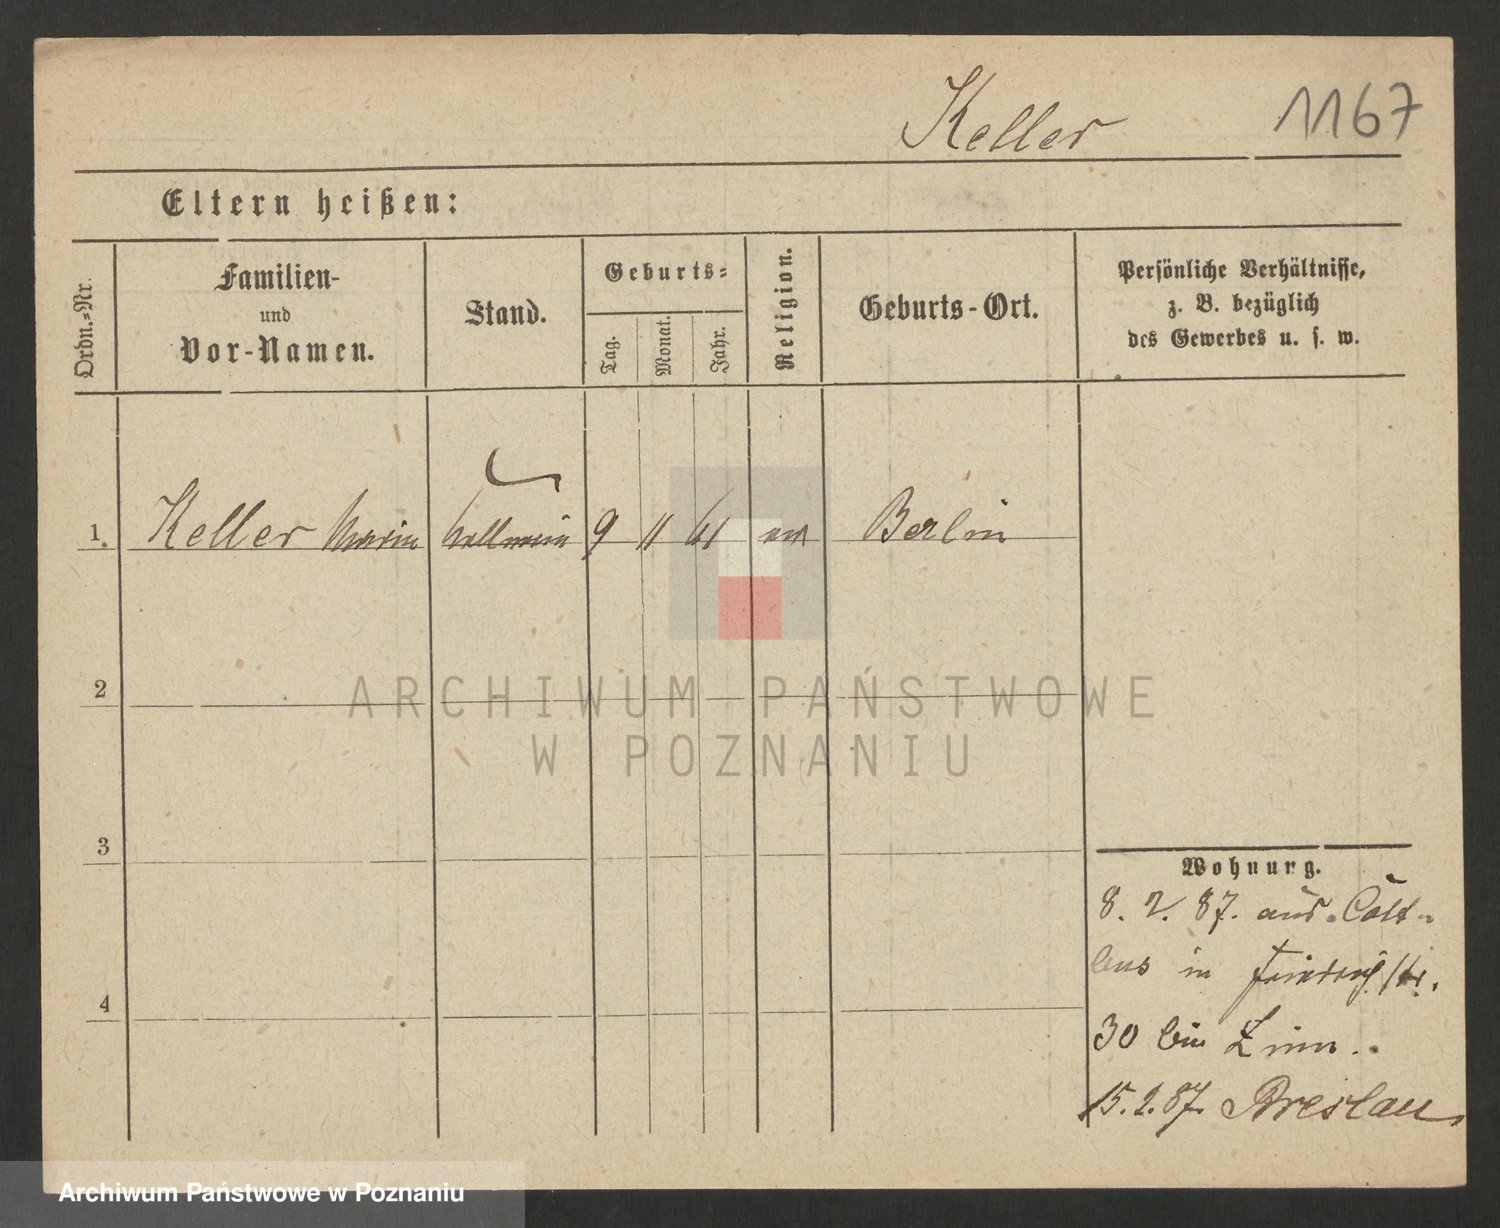 Keller 1167
Eltern heißen:
Ordn.=Nr.
Familien-
und
Vor-Namen.
Stand.
Geburts=
Tag.
Monat.
Jahr.
Religion.
Geburts-Ort.
Persönliche Verhältnisse,
z. B. bezüglich
des Gewerbes u. s. w.
1. Keller Marie Kellnerin 9 11 61 ev Berlin
2
3
4
Wohnung.
8. 2. 87. aus Cott-
bus in Friedrichstr.
30 bei
15. 2. 87. Breslau
ARCHIWUM PAŃSTWOWE
W POZNANIU
Archiwum Państwowe w Poznaniu